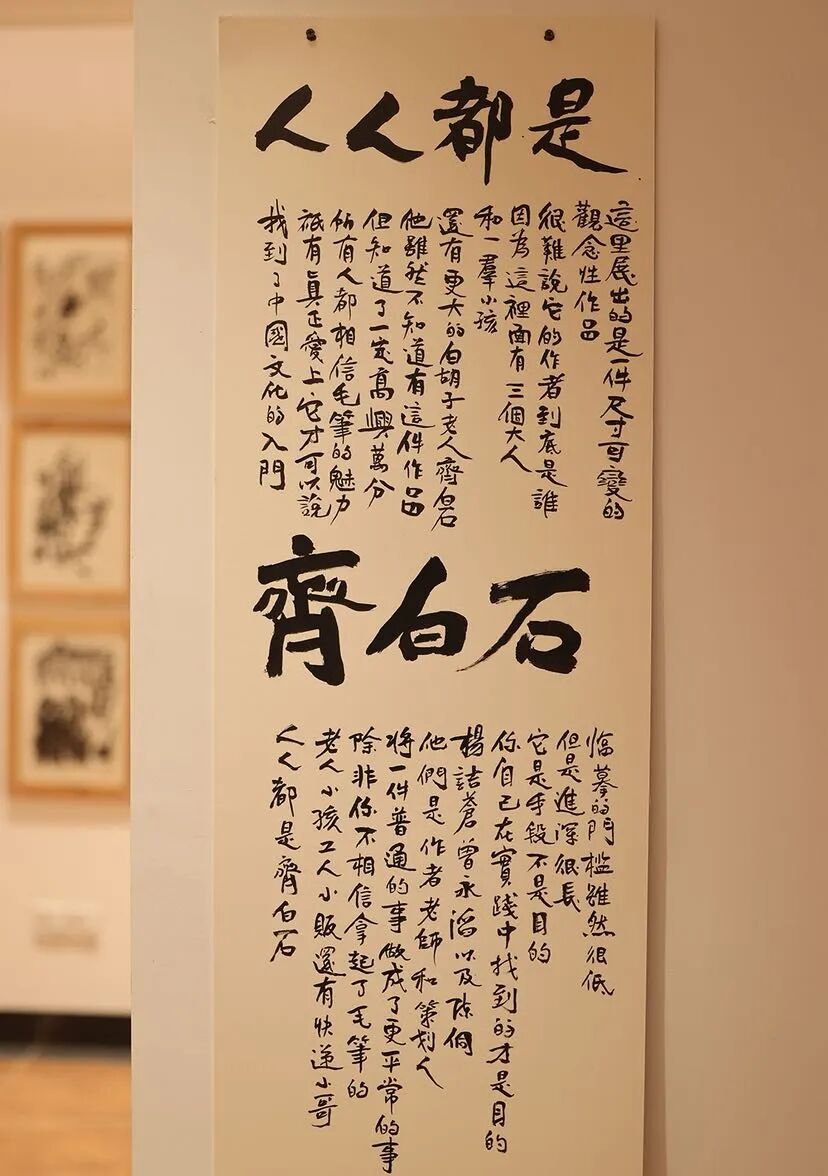 人人都是
這里展出的是一件尺寸可變的
觀念性作品
很難說它的作者到底是誰
因為這裡面有三個大人
和一羣小孩
還有更大的白胡子老人齊白石
他雖然不知道有這件作品
但知道了一定高興萬分
所有人都相信毛筆的魅力
祇有真正愛上它才可以說
找到了中國文化的入門
齊白石
臨摹的門檻雖然很低
但是進深很長
它是手段不是目的
你自己在實踐中找到的才是目的
楊詰蒼曾永滔以及陳侗
他們是作者老師和策划人
將一件普通的事做成了更平常的事
除非你不相信拿起了毛筆的
老人小孩工人小販還有快递小哥
人人都是齊白石